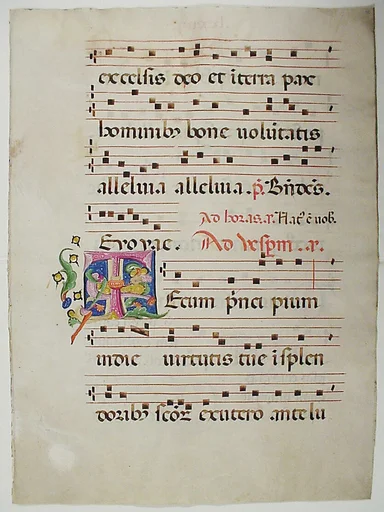 excelsis deo et iterra pax
hominibꝫ bone uolūtatis
alleluia alleluia. p̄. Bn̄dc̄s.
Ad horas. a. Nat' ē uob.
Euouae. Ad vesp̄m. a.
Tecum p̄nci pium
indie uirtutis tue i splen
doribꝫ sc̄oꝝ exutero anteluͥ